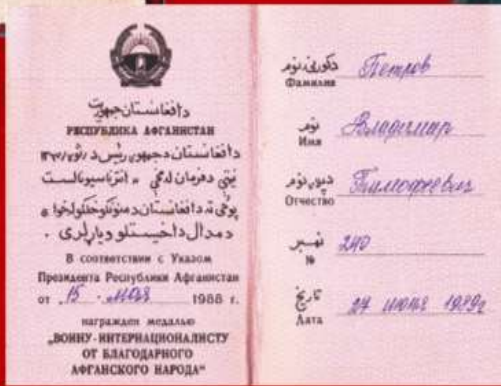 دافغانستان جمهوریت
РЕСПУБЛИКА АФГАНИСТАН
دافغانستان دجمهوری رئیس د
نیټې دفرمان له مخې د انترناسیونالست
پوځی ته دافغانستان دمننکوونکو خلکو لخوا
دمدال داخیستلو وړ بلل کیږی .
В соответствии с Указом
Президента Республики Афганистан
от „15 . мая 1988 г.
награжден медалью
„ВОИНУ-ИНТЕРНАЦИОНАЛИСТУ
ОТ БЛАГОДАРНОГО
АФГАНСКОГО НАРОДА"
دکورنۍ نوم
Фамилия Петров
نوم
Имя Владимир
دپلار نوم
Отчество Тимофеевич
نمبر
№ 240
تاریخ
Дата 24 июня 1989г